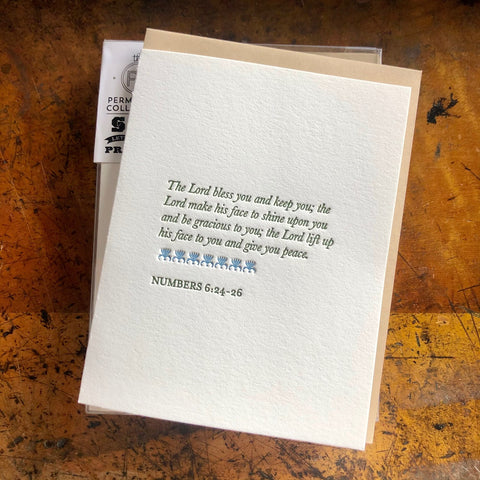 PERM
COLL
PR
The Lord bless you and keep you; the
Lord make his face to shine upon you
and be gracious to you; the Lord lift up
his face to you and give you peace.
NUMBERS 6:24-26